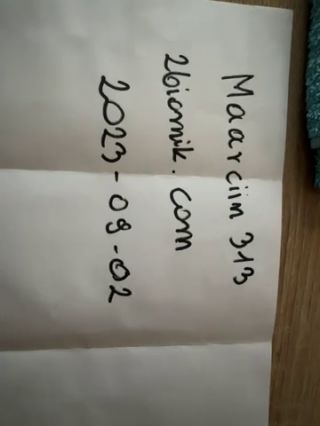 Maarciin 313
2biornik.com
2023-09-02